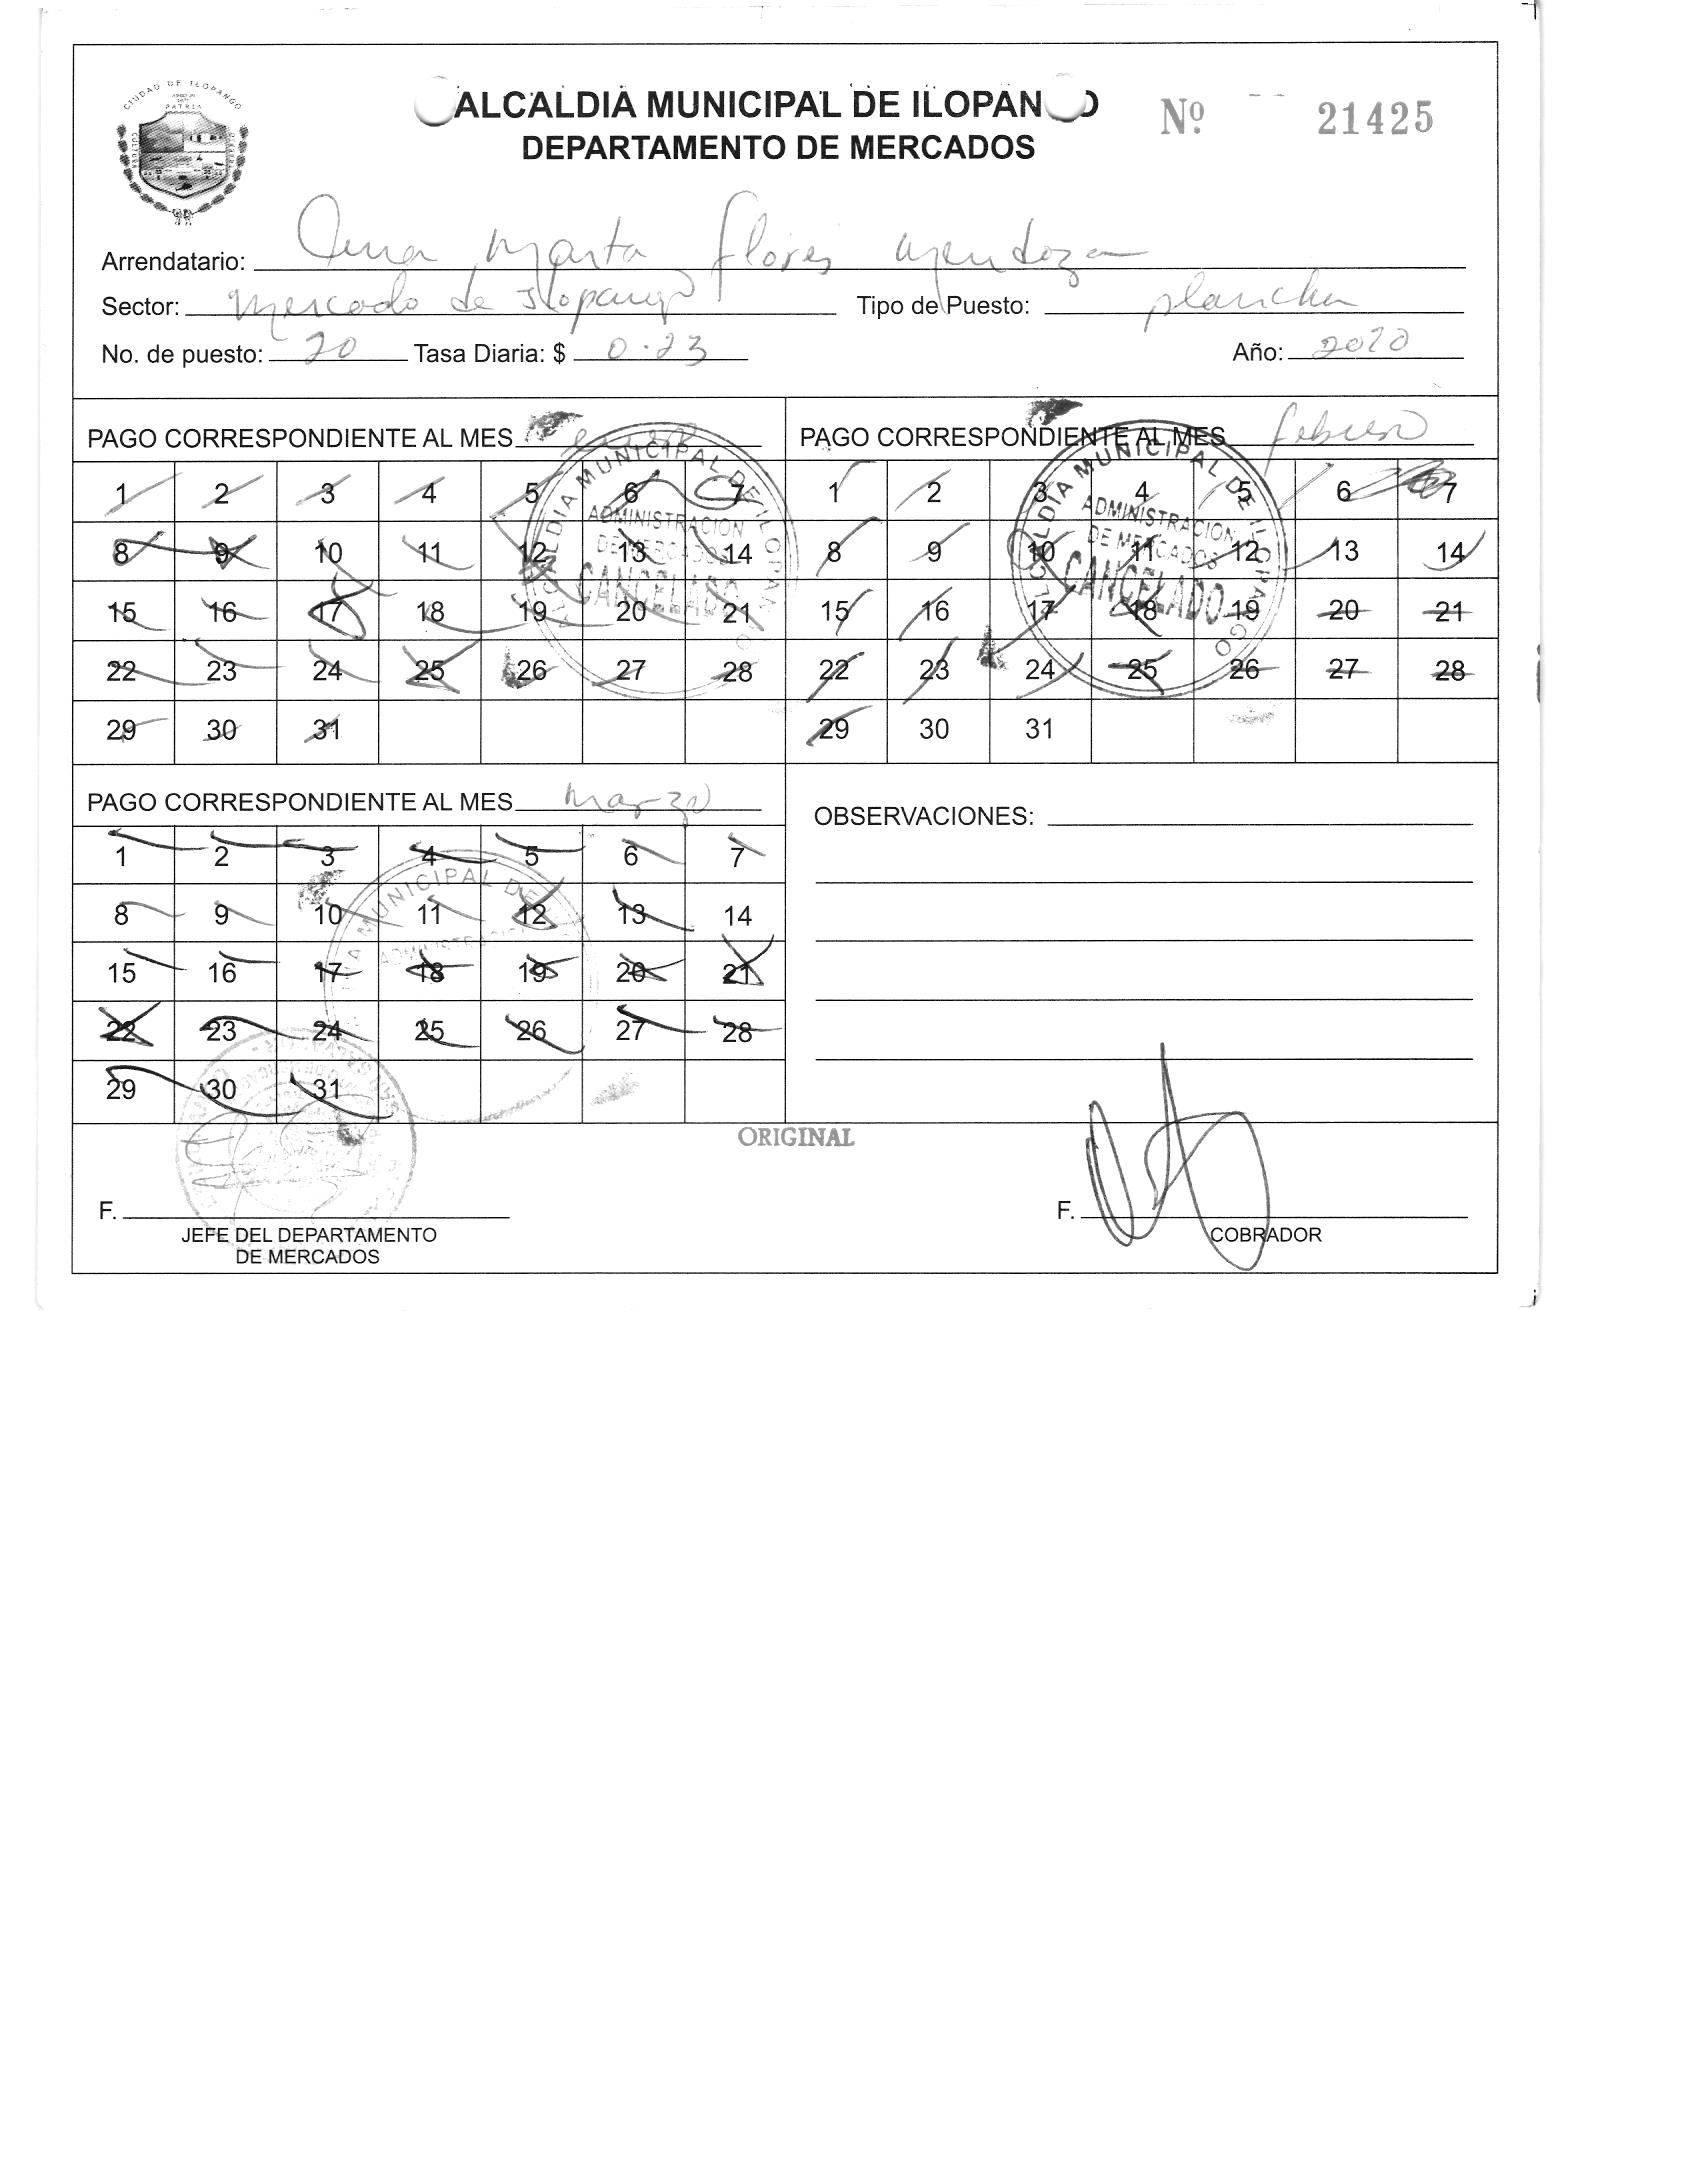 CIUDAD DE ILOPANGO
PATRIA
CULTURA
ALCALDIA MUNICIPAL DE ILOPAN O
DEPARTAMENTO DE MERCADOS
Nº 21425
Arrendatario: Ana Marta Flores Mendoza
Sector: Mercado de Ilopango Tipo de Puesto: plancha
No. de puesto: 20 Tasa Diaria: $ 0.23 Año: 2020
PAGO CORRESPONDIENTE AL MES enero
1 2 3 4 5 6 7
8 9 10 11 12 13 14
15 16 17 18 19 20 21
22 23 24 25 26 27 28
29 30 31
ALCALDIA MUNICIPAL DE ILOPANGO
ADMINISTRACION
DE MERCADOS
CANCELADO
PAGO CORRESPONDIENTE AL MES febrero
1 2 3 4 5 6 7
8 9 10 11 12 13 14
15 16 17 18 19 20 21
22 23 24 25 26 27 28
29 30 31
ALCALDIA MUNICIPAL DE ILOPANGO
ADMINISTRACION
DE MERCADOS
CANCELADO
PAGO CORRESPONDIENTE AL MES marzo
1 2 3 4 5 6 7
8 9 10 11 12 13 14
15 16 17 18 19 20 21
22 23 24 25 26 27 28
29 30 31
MUNICIPAL DE
OBSERVACIONES:
ORIGINAL
F.
JEFE DEL DEPARTAMENTO
DE MERCADOS
F.
COBRADOR